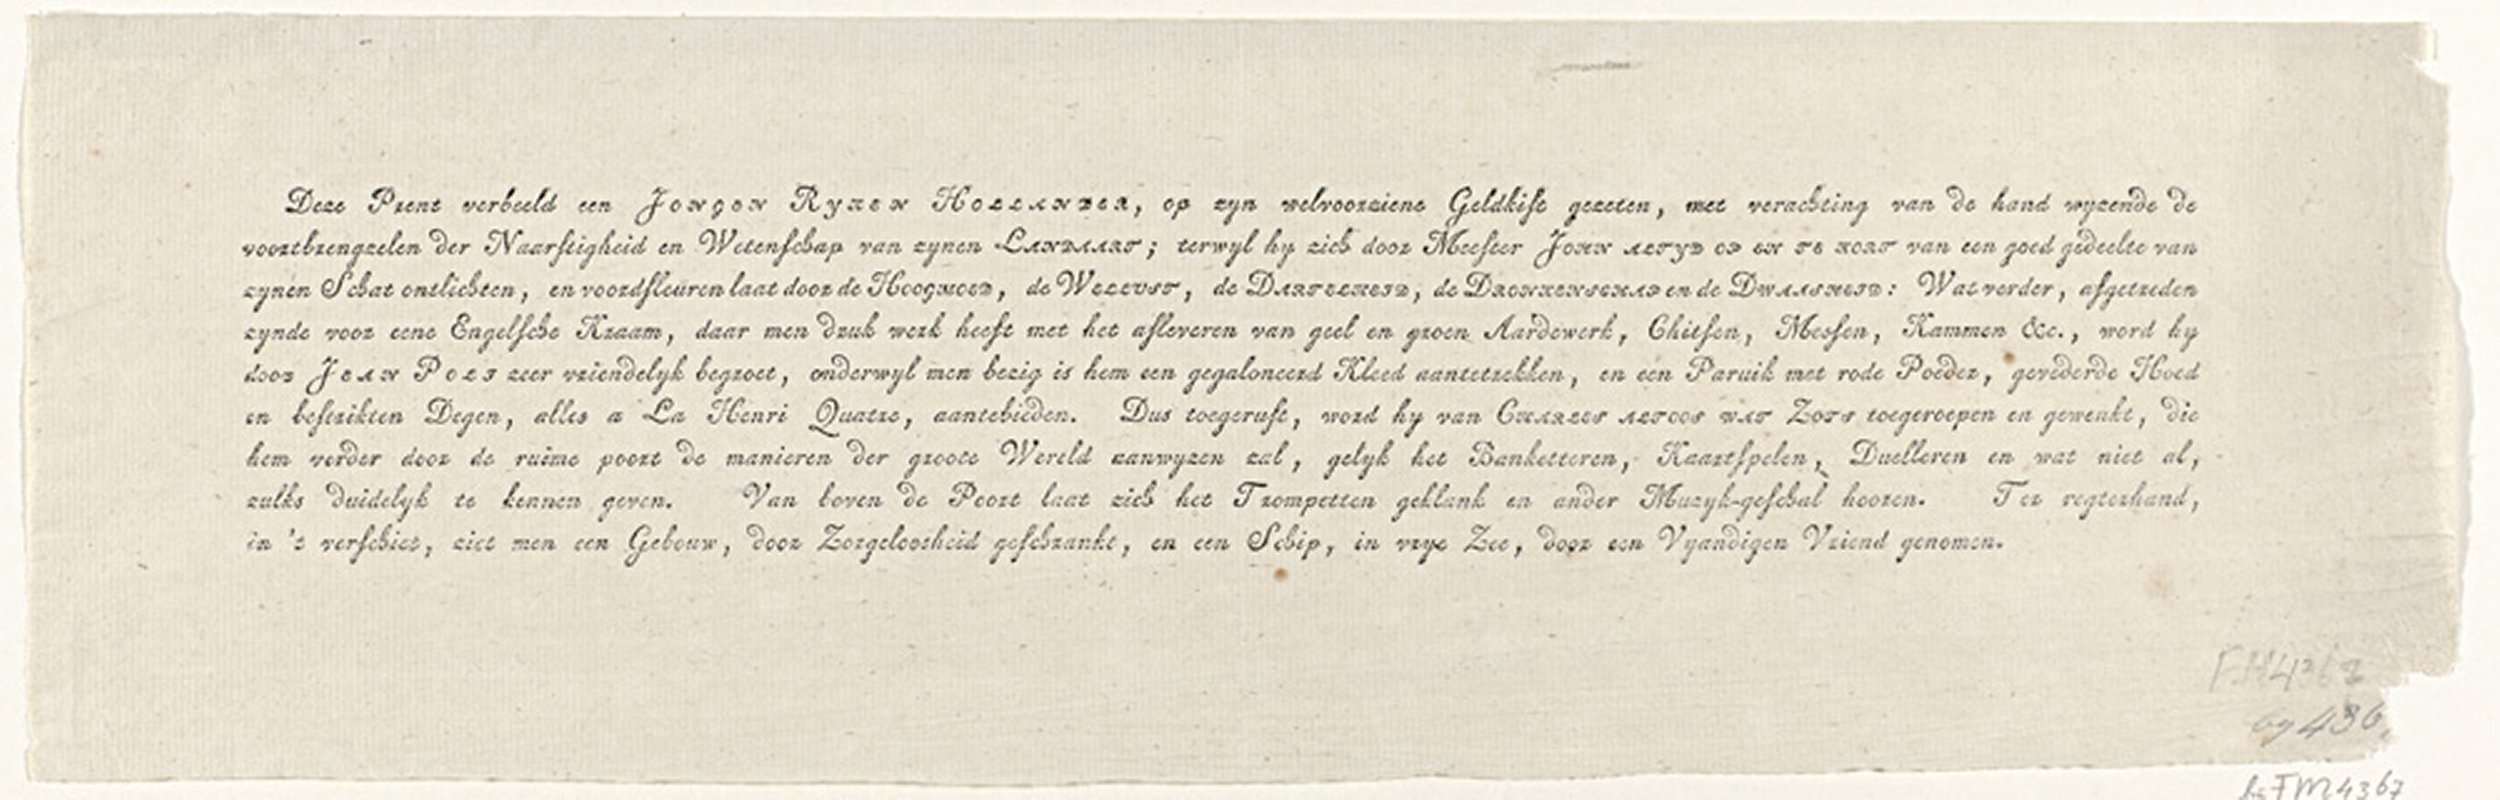 Deze Prent verbeeld een JONGEN RYKEN HOLLANDER, op zyn welvoorziene Geldkist gezeten, met verachting van de hand wyzende de
voortbrengzelen der Naarstigheid en Wetenschap van zynen LANDAART; terwyl hy zich door Meester JOHN ALTYD OP EN TE KORT van een goed gedeelte van
zynen Schat ontlichten, en voordsleuren laat door de HOOGMOED, de WELLUST, de DARTELHEID, de DRONKENSCHAP en de DWAASHEID: Wat verder, afgetreden
zynde voor eene Engelsche Kraam, daar men druk werk heeft met het afleveren van geel en groen Aardewerk, Chitsen, Messen, Kammen &c., word hy
door JEAN POLI zeer vriendelyk begroet, onderwyl men bezig is hem een gegaloneerd Kleed aantetrekken, en een Paruik met rode Poeder, gevederde Hoed
en bestrikten Degen, alles a La Henri Quatre, aantebieden. Dus toegerust, word hy van CHARLES ALTOOS WAT ZOTS toegeroepen en gewenkt, die
hem verder door de ruime poort de manieren der groote Wereld aanwyzen zal, gelyk het Banketteren, Kaartspelen, Duelleren en wat niet al,
zulks duidelyk te kennen geven. Van boven de Poort laat zich het Trompetten geklank en ander Muzyk-geschal hooren. Ter regterhand,
in 't verschiet, ziet men een Gebouw, door Zorgeloosheid geschrankt, en een Schip, in vrye Zee, door een Vyandigen Vriend genomen.
FM4367
by 436
bs FM4367